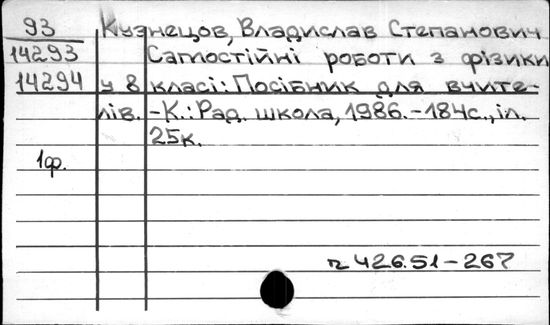 93 Кузнецов, Владислав Степанович
14293 Самостійні роботи з фізики
14294 у 8 класі: Посібник для вчите-
лів. -К.: Рад. школа, 1986.-184с., іл.
25к.
1ф.
426.51-267